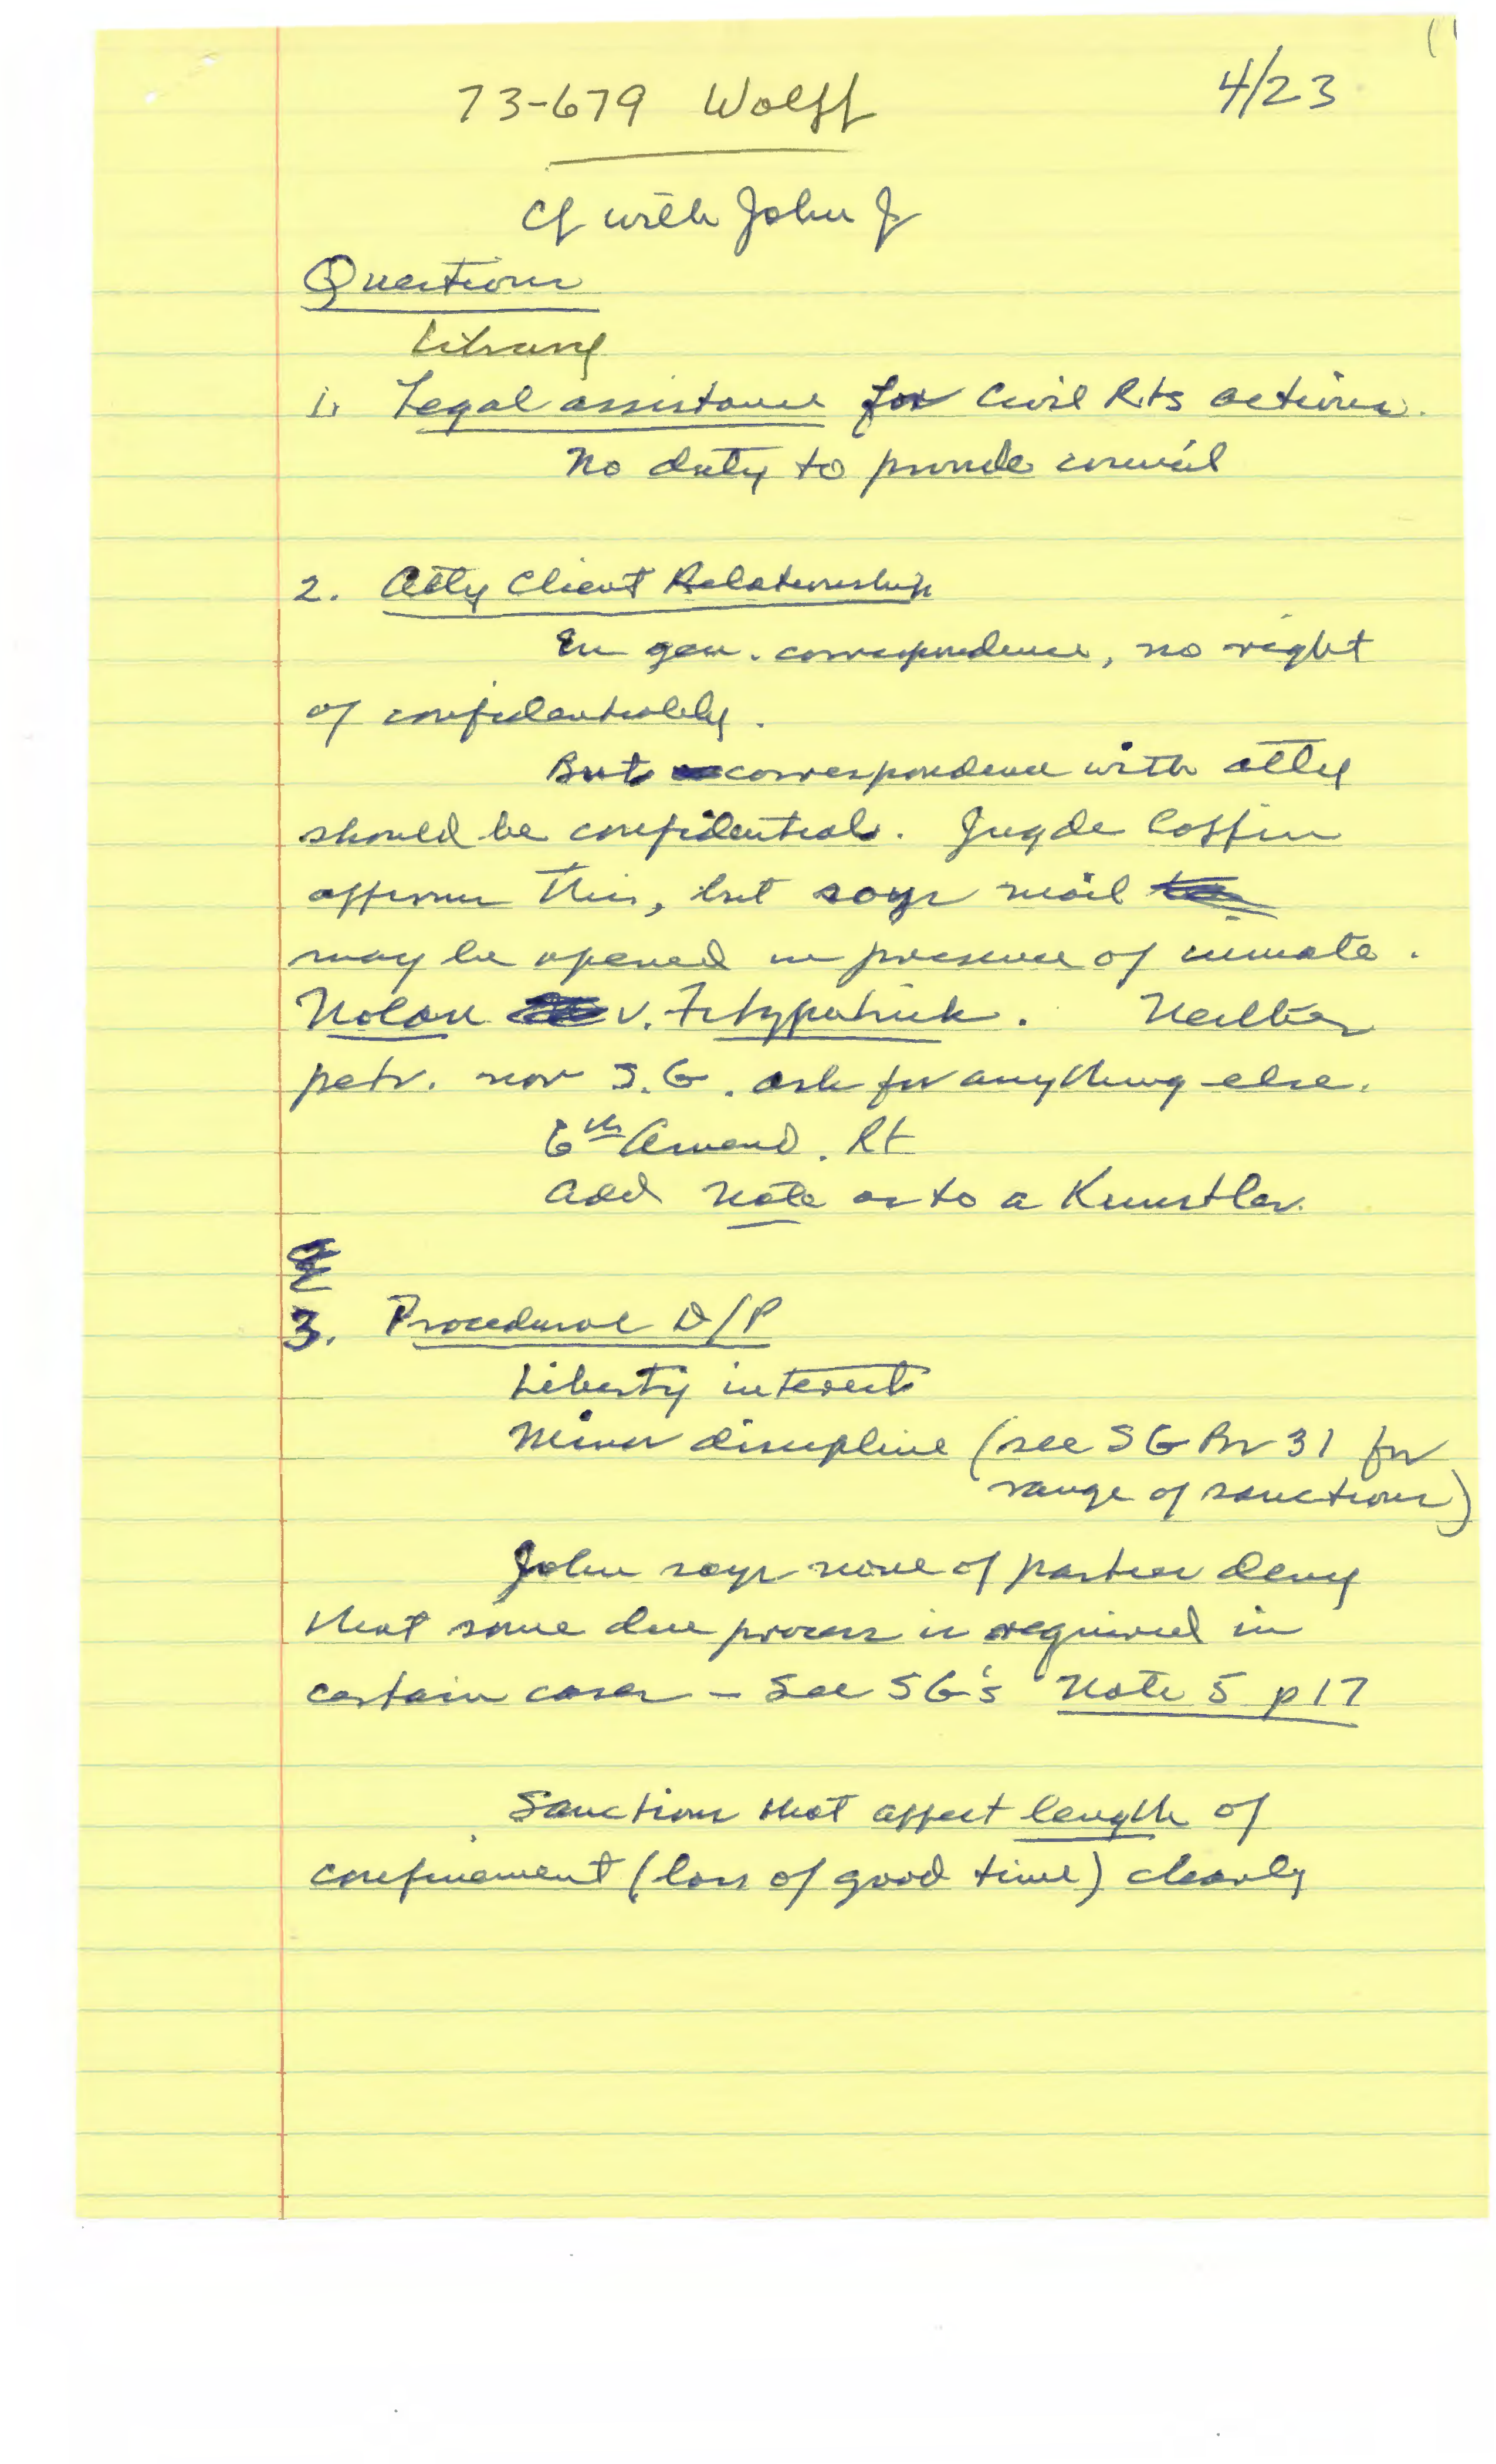 73-679 Wolff 4/23
Cf with John J
Questions
Library
1. Legal assistance for Civil Rts actions.
No duty to provide council
2. Atty Client Relationship
In gen. correspondence, no right
of confidentiality.
But correspondence with atty
should be confidential. Jugde Coffin
affirms this, but says mail
may be opened in presence of inmate.
Nolan v. Fitzpatrick. Neither
petr. nor S.G. ask for anything else.
6th Amend. Rt
Add note as to a Kunstler.
3. Procedural D/P
Liberty interest
Minor discipline (see SG Br 31 for
range of sanctions)
John says none of parties deny
that some due process is required in
certain cases - See SG's Note 5 p17
Sanctions that affect length of
confinement (loss of good time) clearly